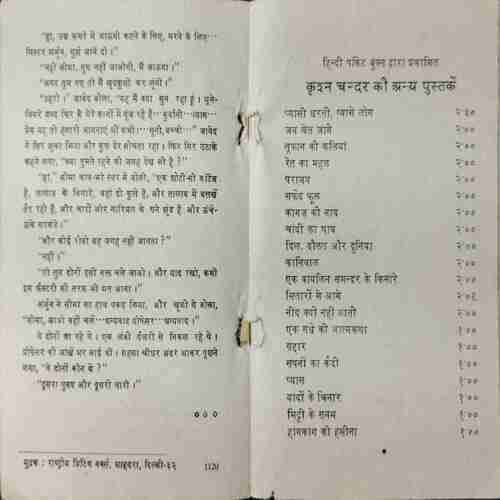 "हां, उस कमरे में जाऊंगी कहने के लिए, मरने के लिए…
मिस्टर अर्जुन, मुझे जाने दो।"
"नहीं सीमा, तुम नहीं जाओगी, मैं जाऊंगा।"
"अगर तुम गए तो मैं खुदकुशी कर लूंगी।"
"ठहरो।" जावेद बोला, "यह मैं क्या सुन रहा हूं।
फिर वही शब्द मेरे कानों में गूंज रहे हैं
प्रेम यह तो हमारी भावनाएं थीं कभी।" जावेद
ने सिर झुका लिया और कुछ देर सोचता रहा। फिर सिर उठाके
कहने लगा, "क्या तुमने रहने की जगह देख ली है?"
"हां," सीमा बोली, "एक छोटी-सी कॉटेज
है, तालाब के किनारे, वहां दो फूल हैं, और तालाब में बतखें
तैर रही हैं, और चारों ओर नारियल के घने झुंड हैं और ऊंचे-
ऊंचे
"और कोई वह जगह नहीं जानता?"
"नहीं।"
"तो तुम दोनों इसी वक्त चले जाओ। और याद रखो, कभी
इस फैक्टरी की तरफ भी मत आना।"
अर्जुन ने सीमा का हाथ पकड़ लिया, और खुशी से बोला,
"सीमा, आओ वहीं चलें…धन्यवाद प्रोफेसर…धन्यवाद।"
वे दोनों जा रहे थे। एक अंधी से निकल रहे थे।
प्रोफेसर की आंखें भर आई थीं। सहसा श्रीधर अंदर आकर पूछने
लगा, "वे दोनों कौन थे?"
"दूसरा पुरुष और दूसरी नारी।"
०००
मुद्रक : राष्ट्रीय प्रिंटिंग वर्क्स, शाहदरा, दिल्ली-३२ 1120
हिन्दी पॉकेट बुक्स द्वारा प्रकाशित
कृश्न चन्दर की अन्य पुस्तकें
प्यासी धरती, प्यासे लोग
जब खेत जागे २'००
तूफान की कलियां २'००
रेत का महल २'००
पराजय २'००
सफेद फूल २'००
कागज़ की नाव २'००
चांदी का घाव २'००
दिल, दौलत और दुनिया २'००
कार्निवाल २'००
एक वायलिन समन्दर के किनारे २'००
सितारों से आगे
नींद क्यों नहीं आती २'००
एक गधे की आत्मकथा १'००
गद्दार १'००
सपनों का कैदी १'००
प्यास १'००
यादों के चिनार १'००
मिट्टी के सनम १'००
हांगकांग की हसीना १'००